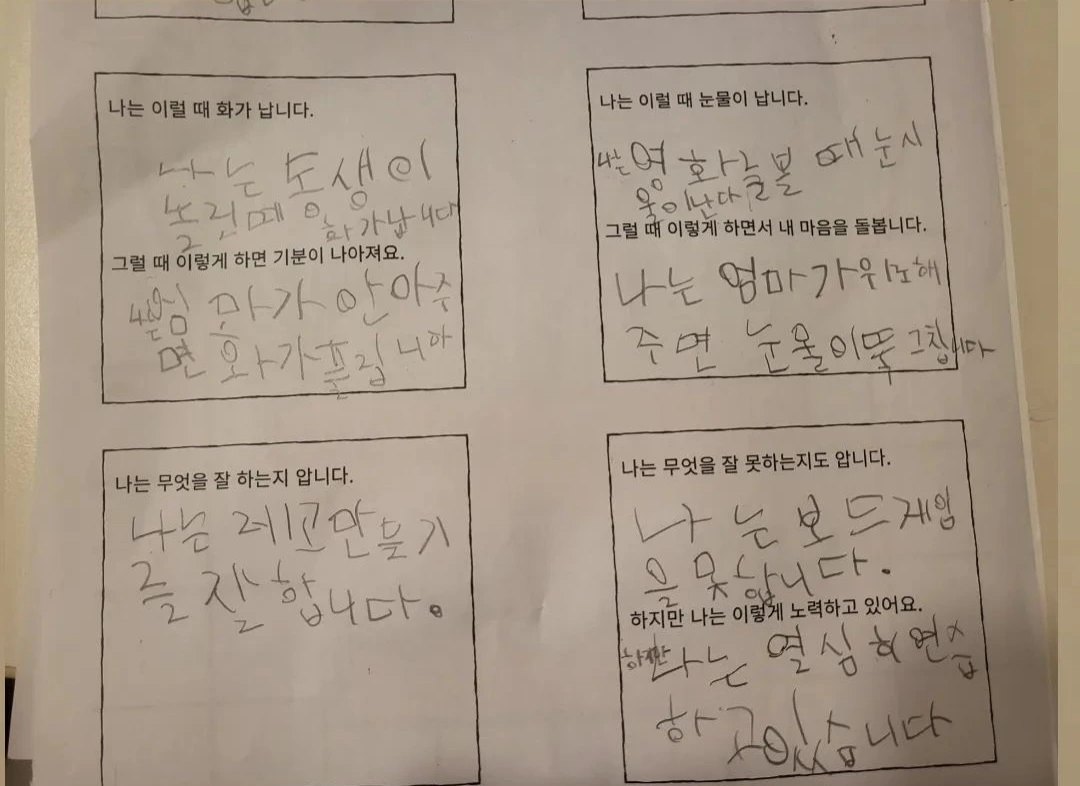 나는 이럴 때 화가 납니다.
나는 동생이
화가납니다
그럴 때 이렇게 하면 기분이 나아져요.
안아주
면 화가풀립니다
나는 이럴 때 눈물이 납니다.
나는 영화를볼 때 눈
물이난다
그럴 때 이렇게 하면서 내 마음을 돌봅니다.
나는 엄마가위로해
주면 눈물이뚝그칩니다
나는 무엇을 잘 하는지 압니다.
나는 레고만들기
를 잘 합니다.
나는 무엇을 잘 못하는지도 압니다.
나는 보드게임
을 못합니다.
하지만 나는 이렇게 노력하고 있어요.
하지만 나는 열심히 연습
하고있습니다